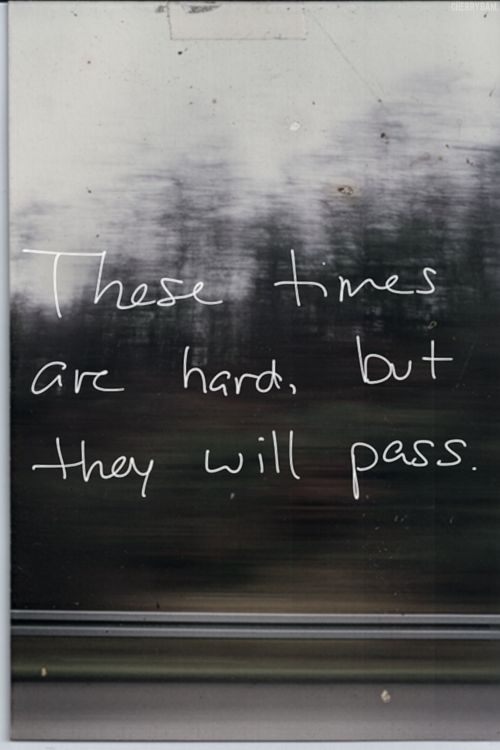 CHERRYBAM
These times
are hard, but
they will pass.